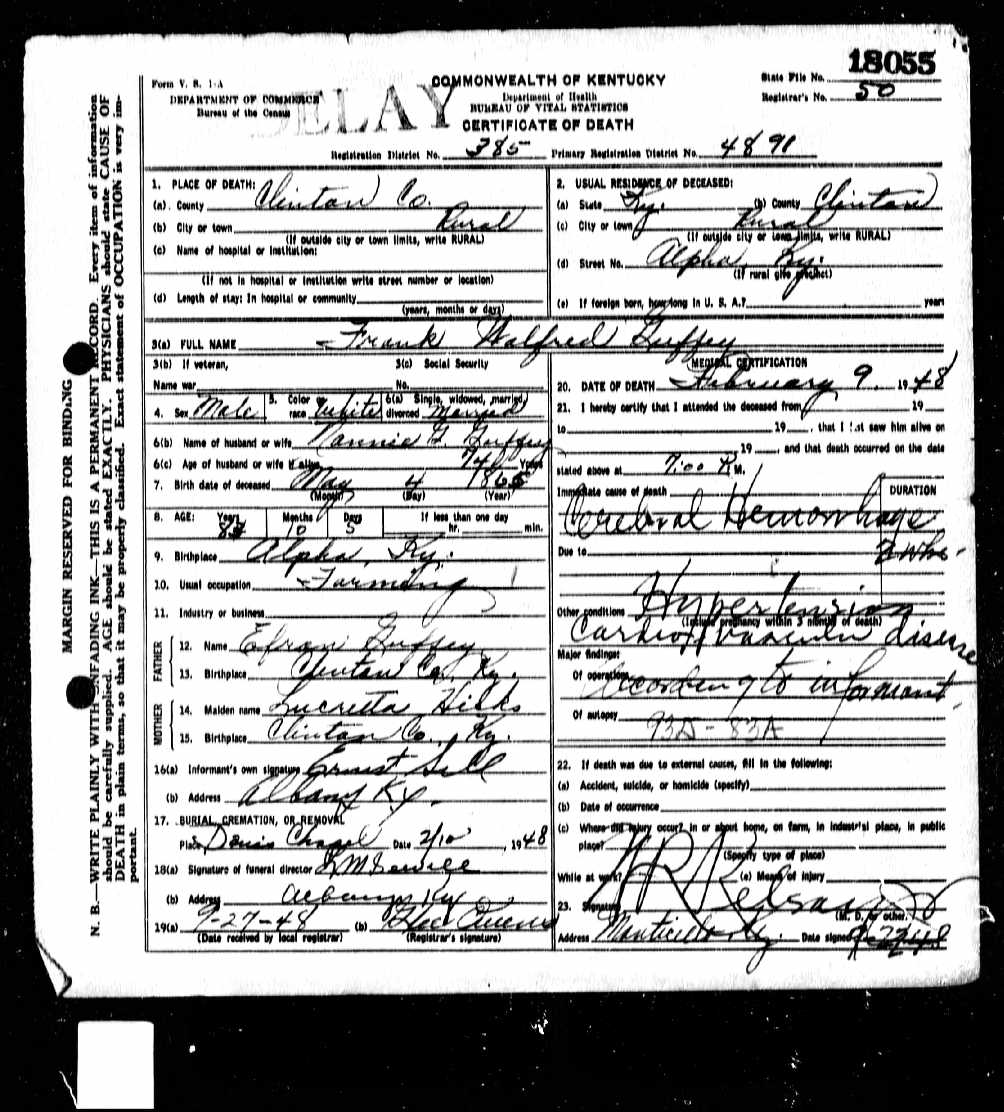 18055
Form V. S. 1-A
COMMONWEALTH OF KENTUCKY
State File No.
DEPARTMENT OF COMMERCE
Bureau of the Census
DELAY
Department of Health
BUREAU OF VITAL STATISTICS
Registrar's No. 50
CERTIFICATE OF DEATH
Registration District No. 385 Primary Registration District No. 4891
MARGIN RESERVED FOR BINDING
N. B.—WRITE PLAINLY WITH UNFADING INK—THIS IS A PERMANENT RECORD. Every item of information
should be carefully supplied. AGE should be stated EXACTLY. PHYSICIANS should state CAUSE OF
DEATH in plain terms, so that it may be properly classified. Exact statement of OCCUPATION is very im-
portant.
1. PLACE OF DEATH:
(a) County Clinton Co.
(b) City or town Rural
(If outside city or town limits, write RURAL)
(c) Name of hospital or institution:
(If not in hospital or institution write street number or location)
(d) Length of stay: In hospital or community
(years, months or days)
2. USUAL RESIDENCE OF DECEASED:
(a) State Ky. (b) County Clinton
(c) City or town Rural
(If outside city or town limits, write RURAL)
(d) Street No. Alpha, Ky.
(If rural give precinct)
(e) If foreign born, how long in U. S. A.? years
3(a) FULL NAME Frank Walfred Guffey
3(b) If veteran, 3(c) Social Security
Name war No.
4. Sex Male 5. Color or race White 6(a) Single, widowed, married, divorced Married
6(b) Name of husband or wife Nannie G. Guffey
6(c) Age of husband or wife if alive Years
7. Birth date of deceased May 4 1865
(Month) (Day) (Year)
8. AGE: Years Months Days If less than one day
10 5 hr. min.
9. Birthplace Alpha, Ky.
10. Usual occupation Farming
11. Industry or business
FATHER
12. Name Guffey
13. Birthplace Clinton Co., Ky.
MOTHER
14. Maiden name Lucretta Hicks
15. Birthplace Clinton Co., Ky.
16(a) Informant's own signature Ernst
(b) Address Albany Ky.
17. BURIAL, CREMATION, OR REMOVAL
Place Davis Chapel Date 2/10 1948
18(a) Signature of funeral director
(b) Address Albany Ky
19(a) 9-27-48 (b) Owens
(Date received by local registrar) (Registrar's signature)
MEDICAL CERTIFICATION
20. DATE OF DEATH February 9. 1948
21. I hereby certify that I attended the deceased from 19
to 19 , that I last saw him alive on
19 , and that death occurred on the date
stated above at 7:00 P. M.
Immediate cause of death DURATION
Cerebral Hemorrhage
Due to 2 wks.
Other conditions Hypertension
(Include pregnancy within 3 months of death)
Cardio vascular disease
Major findings:
Of operations According to informant.
Of autopsy 93D-83A
22. If death was due to external causes, fill in the following:
(a) Accident, suicide, or homicide (specify)
(b) Date of occurrence
(c) Where did injury occur? in or about home, on farm, in industrial place, in public
place?
(Specify type of place)
While at work? (e) Means of injury
23. Signature
(M. D. or other.
Address Monticello Ky. Date signed